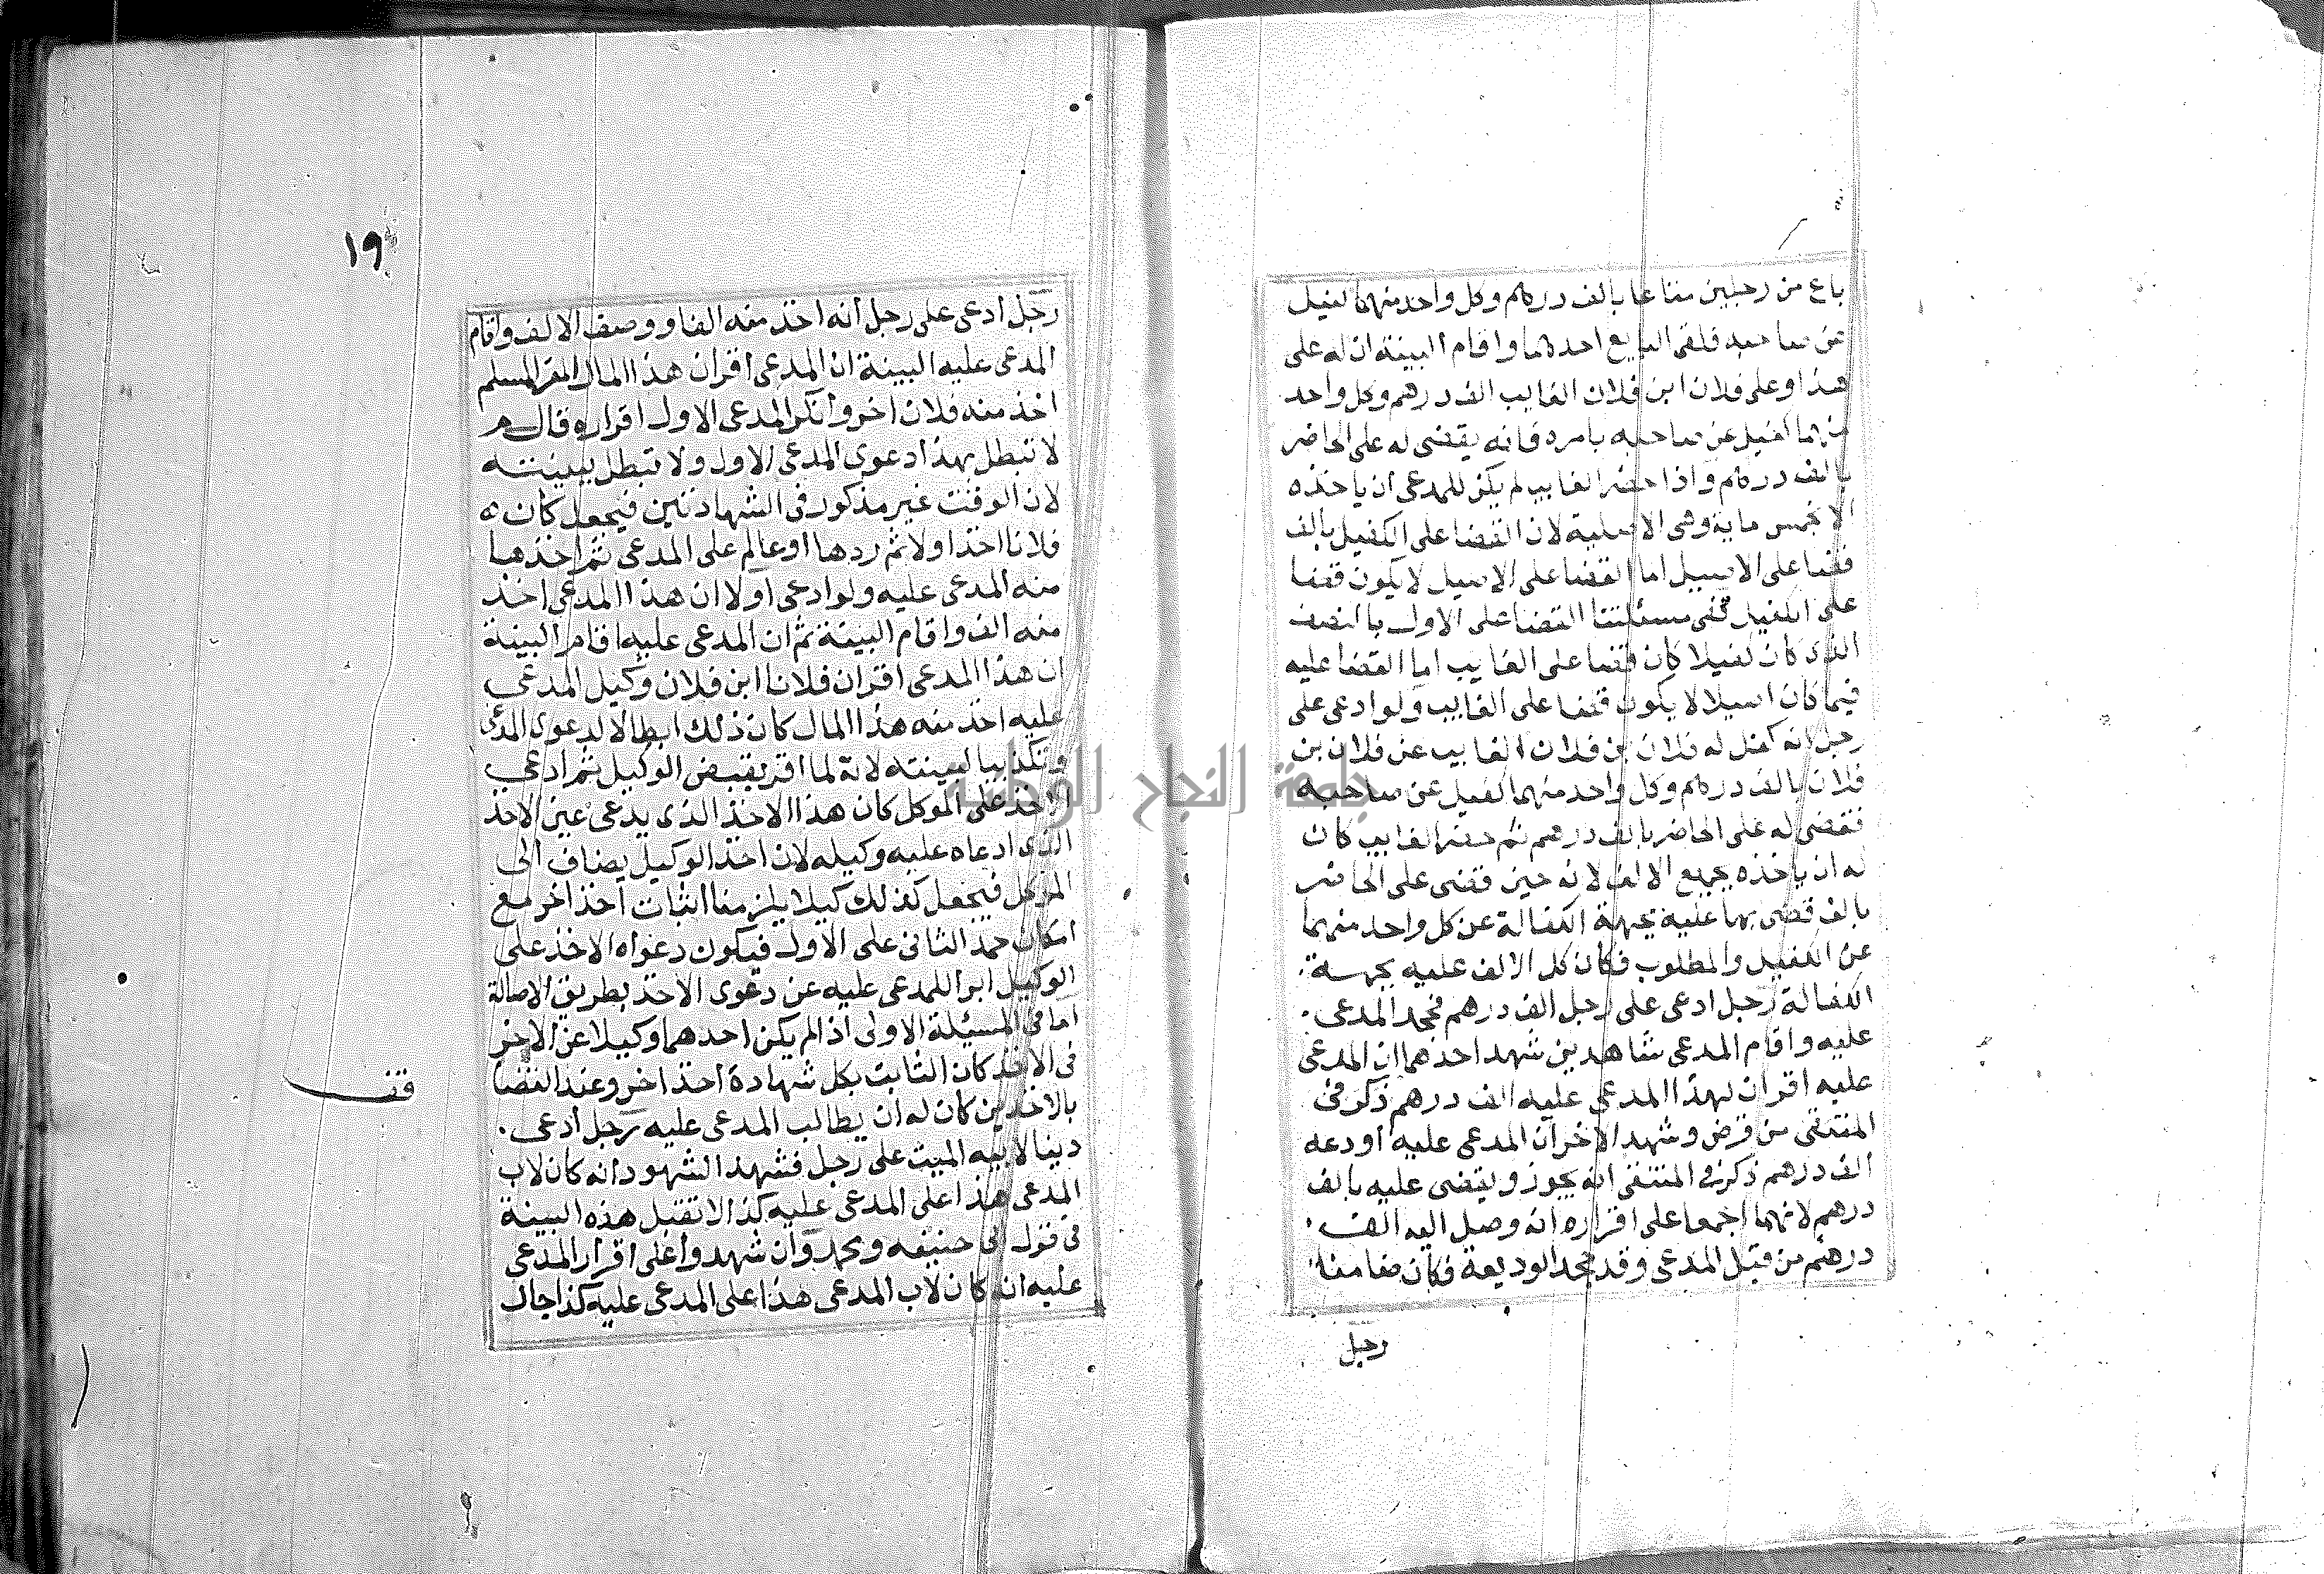 باع من رجلين متاعا بالف درهم وكل واحد منهما كفيل
عن صاحبه فلقى البايع احدهما واقام البينة ان له على
هذا وعلى فلان ابن فلان الغايب الف درهم وكل واحد
منهما كفيل عن صاحبه بامره فانه يقضى له على الحاضر
بالف درهم واذا حضر الغايب لم يكن للمدعى ان ياخذه
الا بخمس ماية وهى الاصلية لان القضا على الكفيل بالف
قضا على الاصيل اما القضا على الاصيل لا يكون قضا
على الكفيل ففى مسئلتنا القضا على الاول بالنصف
الذى كان كفيلا كان قضا على الغايب اما القضا عليه
فيما كان اصيلا لا يكون قضا على الغايب ولو ادعى على
رجل انه كفل له فلان بن فلان الغايب عن فلان بن
فلان بالف درهم وكل واحد منهما كفيل عن صاحبه
فقضى له على الحاضر بالف درهم ثم حضر الغايب كان
له ان ياخذه بجميع الالف لانه حين قضى على الحاضر
بالف قضى بها عليه بجهة الكفالة عن كل واحد منهما
عن الكفيل والمطلوب فكان كل الالف عليه بجهة
الكفالة رجل ادعى على رجل الف درهم فجحد المدعى
عليه واقام المدعى شاهدين شهد احدهما ان المدعى
عليه اقر ان لهذا المدعى عليه الف درهم ذكر فى
المنتقى من قرض وشهد الاخر ان المدعى عليه اودعه
الف درهم ذكر فى المنتقى انه يجوز ويقضى عليه بالف
درهم لانهما اجمعا على اقراره انه وصل اليه الف
درهم من قبل المدعى وقد جحد الوديعة فكان ضامنا
رجل
١٩
رجل ادعى على رجل انه اخذ منه الفا ووصف الالف واقام
المدعى عليه البينة ان المدعى اقر ان هذا المال المسلم
اخذ منه فلان اخر وانكر المدعى الاول اقراره قال م
لا تبطل بهذا دعوى المدعى الاول ولا تبطل بينته
لان الوقت غير مذكور فى الشهادتين فيجعل كان
فلانا اخذ اولا ثم ردها على المدعى ثم اخذها
منه المدعى عليه ولو ادعى اولا ان هذا المدعى اخذ
منه الف واقام البينة ثم ان المدعى عليه اقام البينة
ان هذا المدعى اقر ان فلانا ابن فلان وكيل المدعى
عليه اخذ منه هذا المال كان ذلك ابطالا لدعوى المدعى
وتكذيبا لبينته لانه لما اقر بقبض الوكيل ثم ادعى
الاخذ على الموكل كان هذا الاخذ الذى يدعى عين الاخذ
الذى ادعاه عليه وكيله لان اخذ الوكيل يضاف الى
الموكل فيجعل كذلك كيلا يلزمنا اثبات اخذ اخر مع
امكان حمل الثانى على الاول فيكون دعواه الاخذ على
الوكيل ابرا للمدعى عليه عن دعوى الاخذ بطريق الاصالة
اما فى المسئلة الاولى اذا لم يكن احدهما وكيلا عن الاخر
فى الاخذ كان الثابت بكل شهادة اخذ اخر وعند القضا
بالاخذين كان له ان يطالب المدعى عليه رجل ادعى
دينا لابيه الميت على رجل فشهد الشهود انه كان لاب
المدعى هذا على المدعى عليه كذا لا تقبل هذه البينة
فى قول ابى حنيفه ومحمد وان شهدوا على اقرار المدعى
عليه انه كان لاب المدعى هذا على المدعى عليه كذا جاز
قف
جامعة النجاح الوطنية